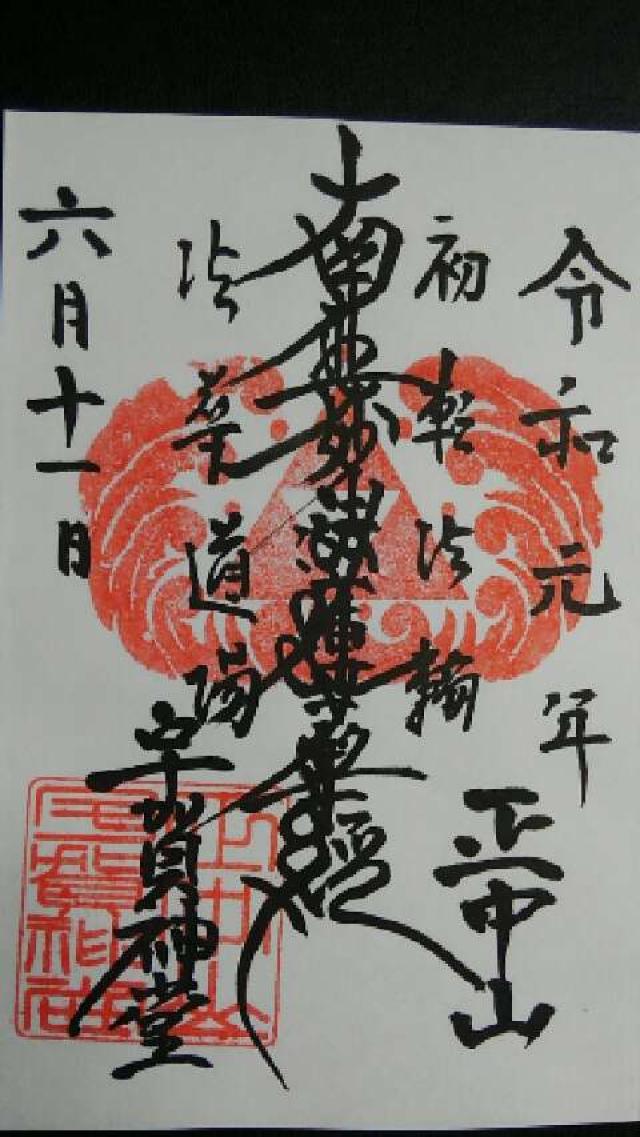 令和元年
正中山
初転法輪
南無妙法蓮華経
法華道場
宇賀神堂
六月十一日